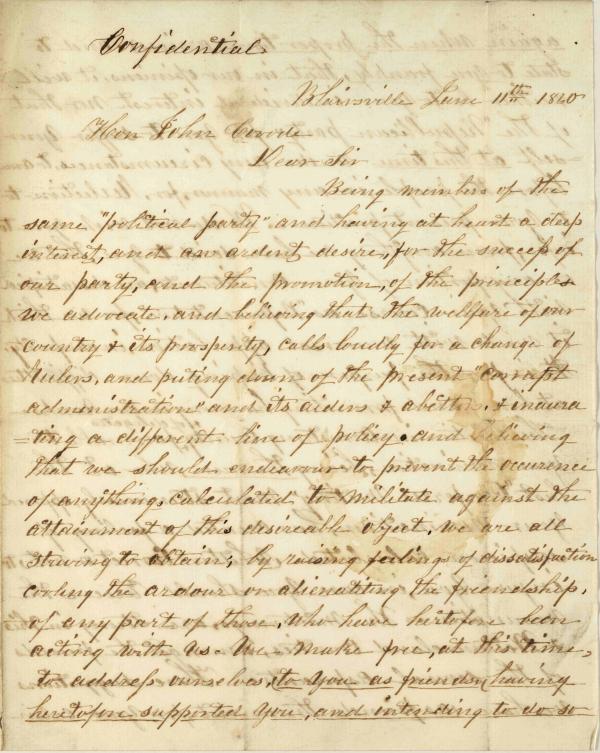 Confidential
Blairsville June 11th 1860
Hon John Covode
Dear Sir
Being members of the
same "political party" and having at heart a deep
interest, and an ardent desire, for the success of
our party, and the promotion, of the principles
we advocate, and believing that the wellfare of our
country & its prosperity, calls loudly for a change of
rulers, and puting down of the present "corrupt
administration" and its aiders & abettors, & inaura
=ting a different line of policy. and believing
that we should endeavour to prevent the occurence
of anything, calculated to militate against the
attainment of this desireable object, we are all
striving to obtain; by raising feelings of dissatisfaction
cooling the ardour or alienatiting the friendship,
of any part of those, who have hertofore been
acting with us. We make free, at this time,
to address ourselves, to you as friends, having
heretofore supported you, and intending to do so